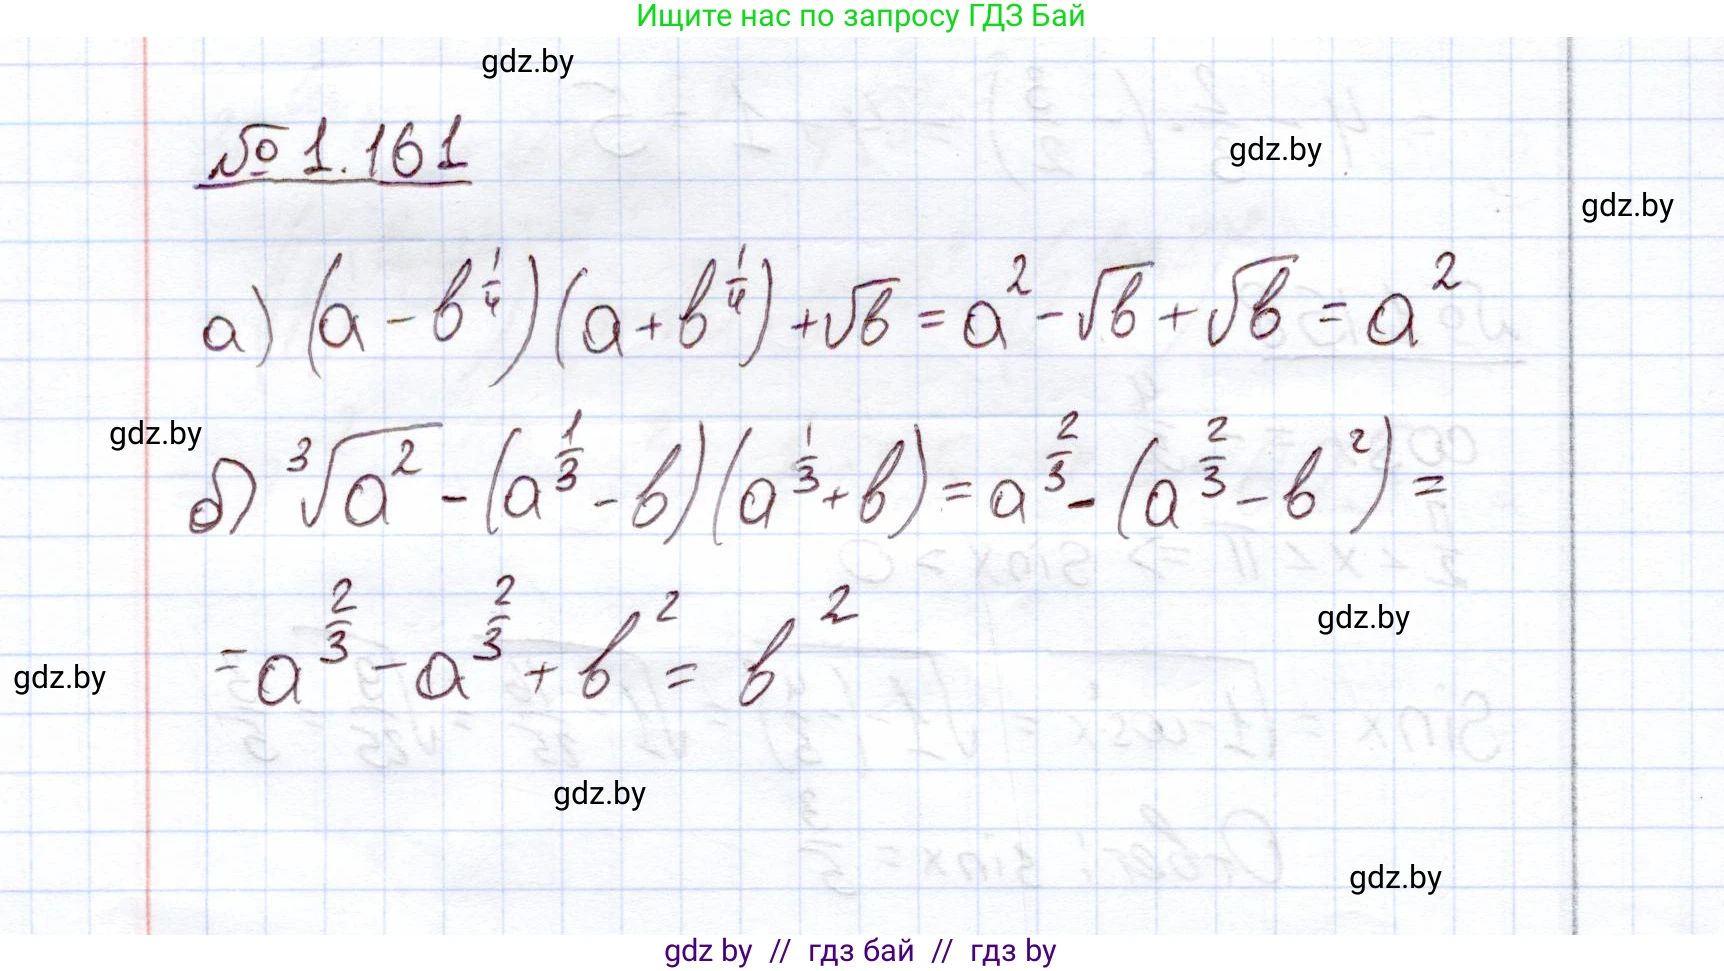 Ищите нас по запросу ГДЗ Бай
gdz.by
gdz.by
gdz.by
№ 1.161
а) (a - b^{1/4})(a + b^{1/4}) + √b = a² - √b + √b = a²
gdz.by
б) ³√a² - (a^{1/3} - b)(a^{1/3} + b) = a^{2/3} - (a^{2/3} - b²) =
gdz.by
= a^{2/3} - a^{2/3} + b² = b²
gdz.by
gdz.by
gdz.by
gdz by // гдз бай // гдз by